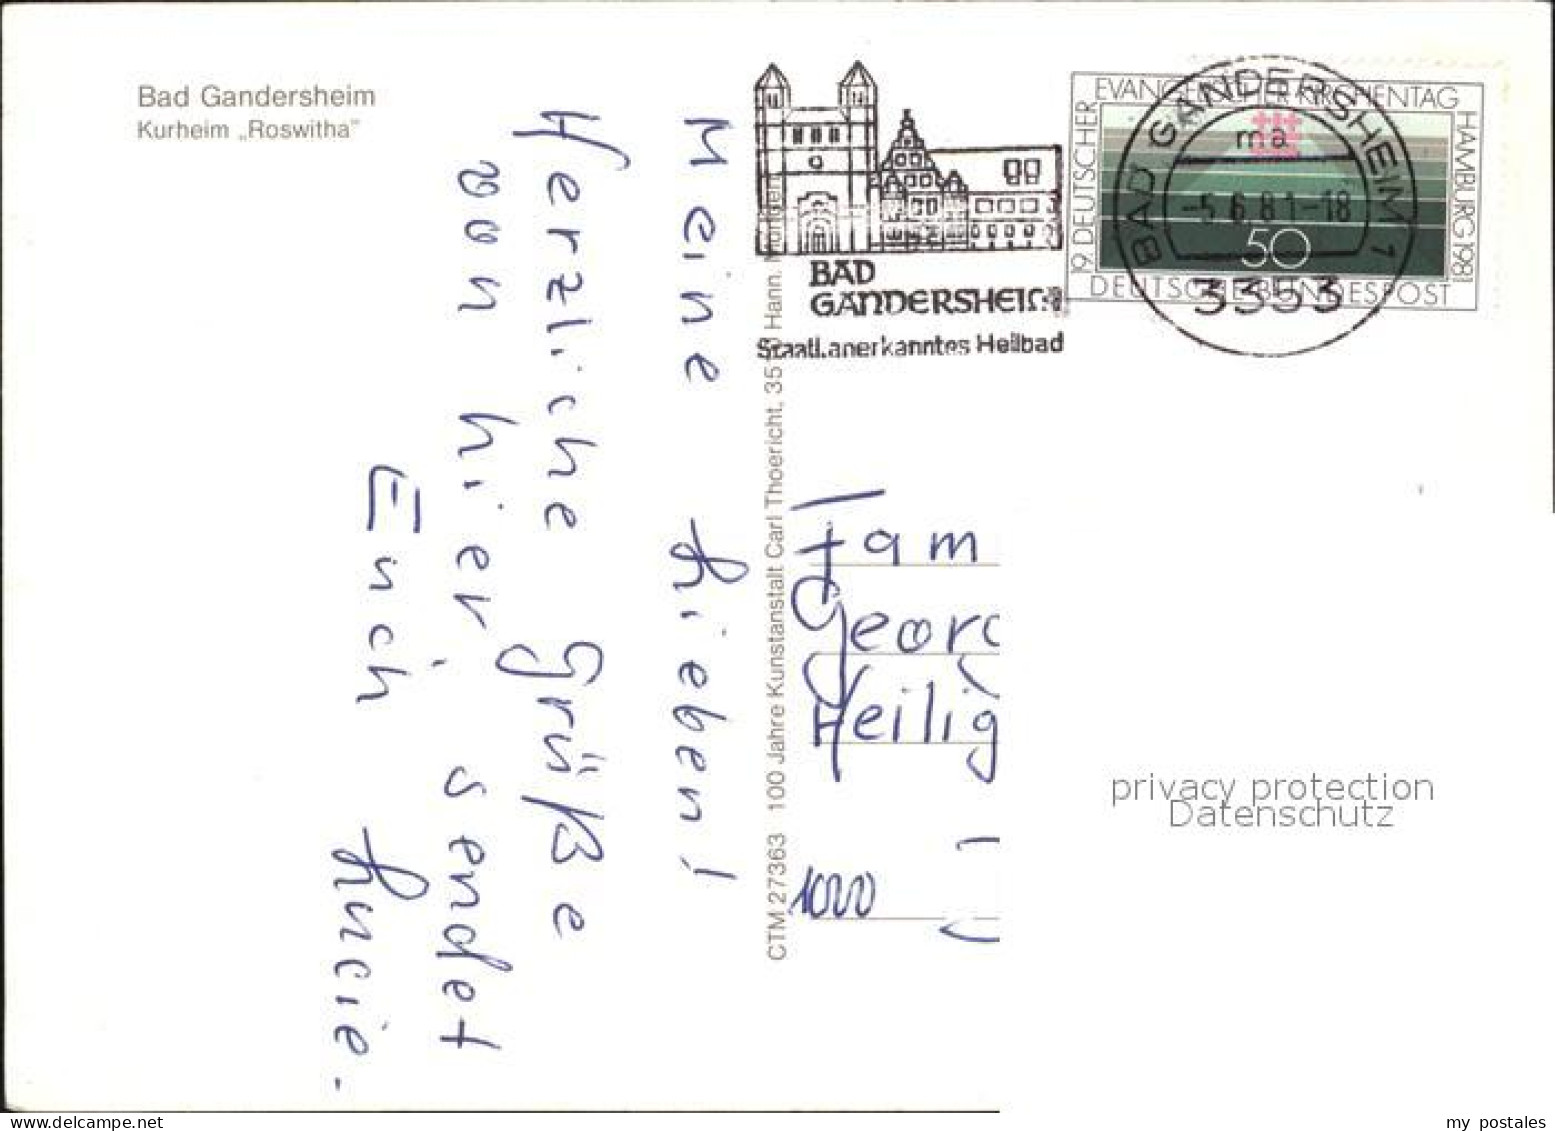 Bad Gandersheim
Kurheim „Roswitha"
Meine Lieben!
Herzliche Grüße
von hier, sendet
Euch Lucie.
CTM 27363 100 Jahre Kunstanstalt Carl Thoericht, 351 Hann.
BAD
GANDERSHEIM
Staatl. anerkanntes Heilbad
19. DEUTSCHER EVANGELISCHER KIRCHENTAG HAMBURG 1981
50
DEUTSCHE BUNDESPOST
BAD GANDERSHEIM 1
ma
-5.6.81-18
3353
Fam
Georg
Heilig
1000
privacy protection
Datenschutz
my postales